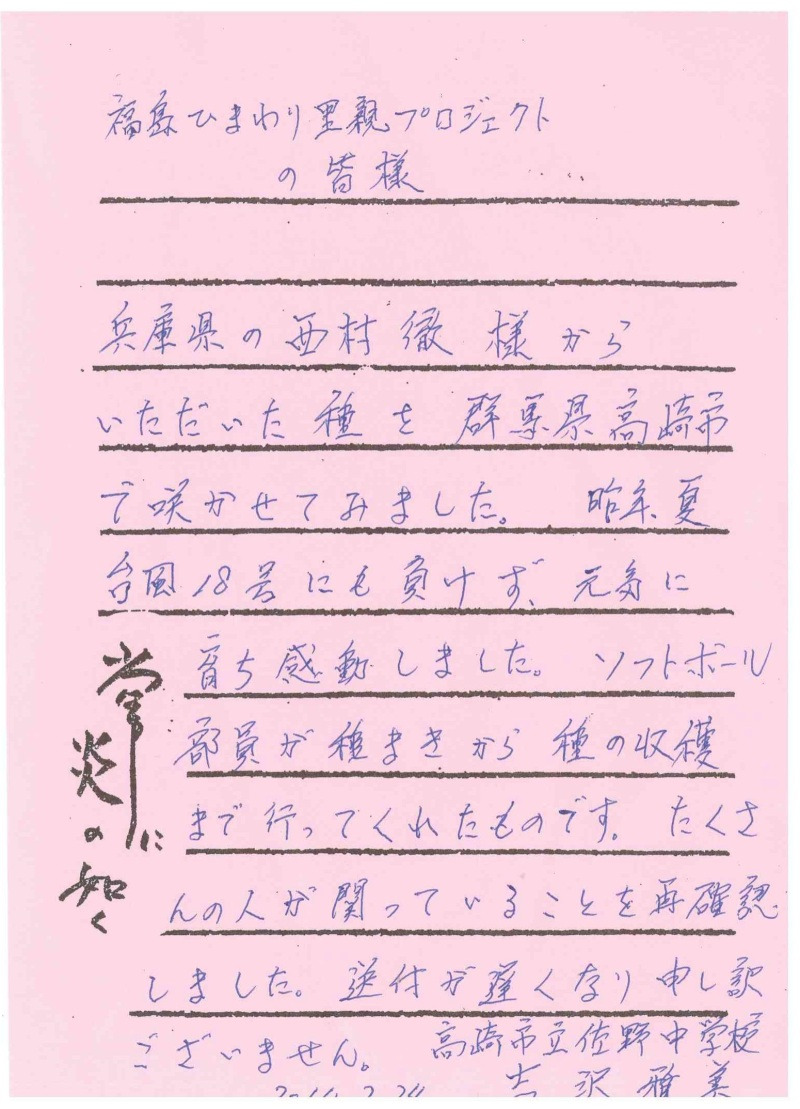 福島ひまわり里親プロジェクト
の皆様
兵庫県の西村徹様から
いただいた種を群馬県高崎市
で咲かせてみました。 昨年、夏
台風18号にも負けず、元気に
育ち感動しました。 ソフトボール
部員が種まきから種の収穫
まで行ってくれたものです。 たくさ
んの人が関っていることを再確認
しました。送付が遅くなり申し訳
ございません。 高崎市立佐野中学校
吉沢雅美
常に
炎の如く